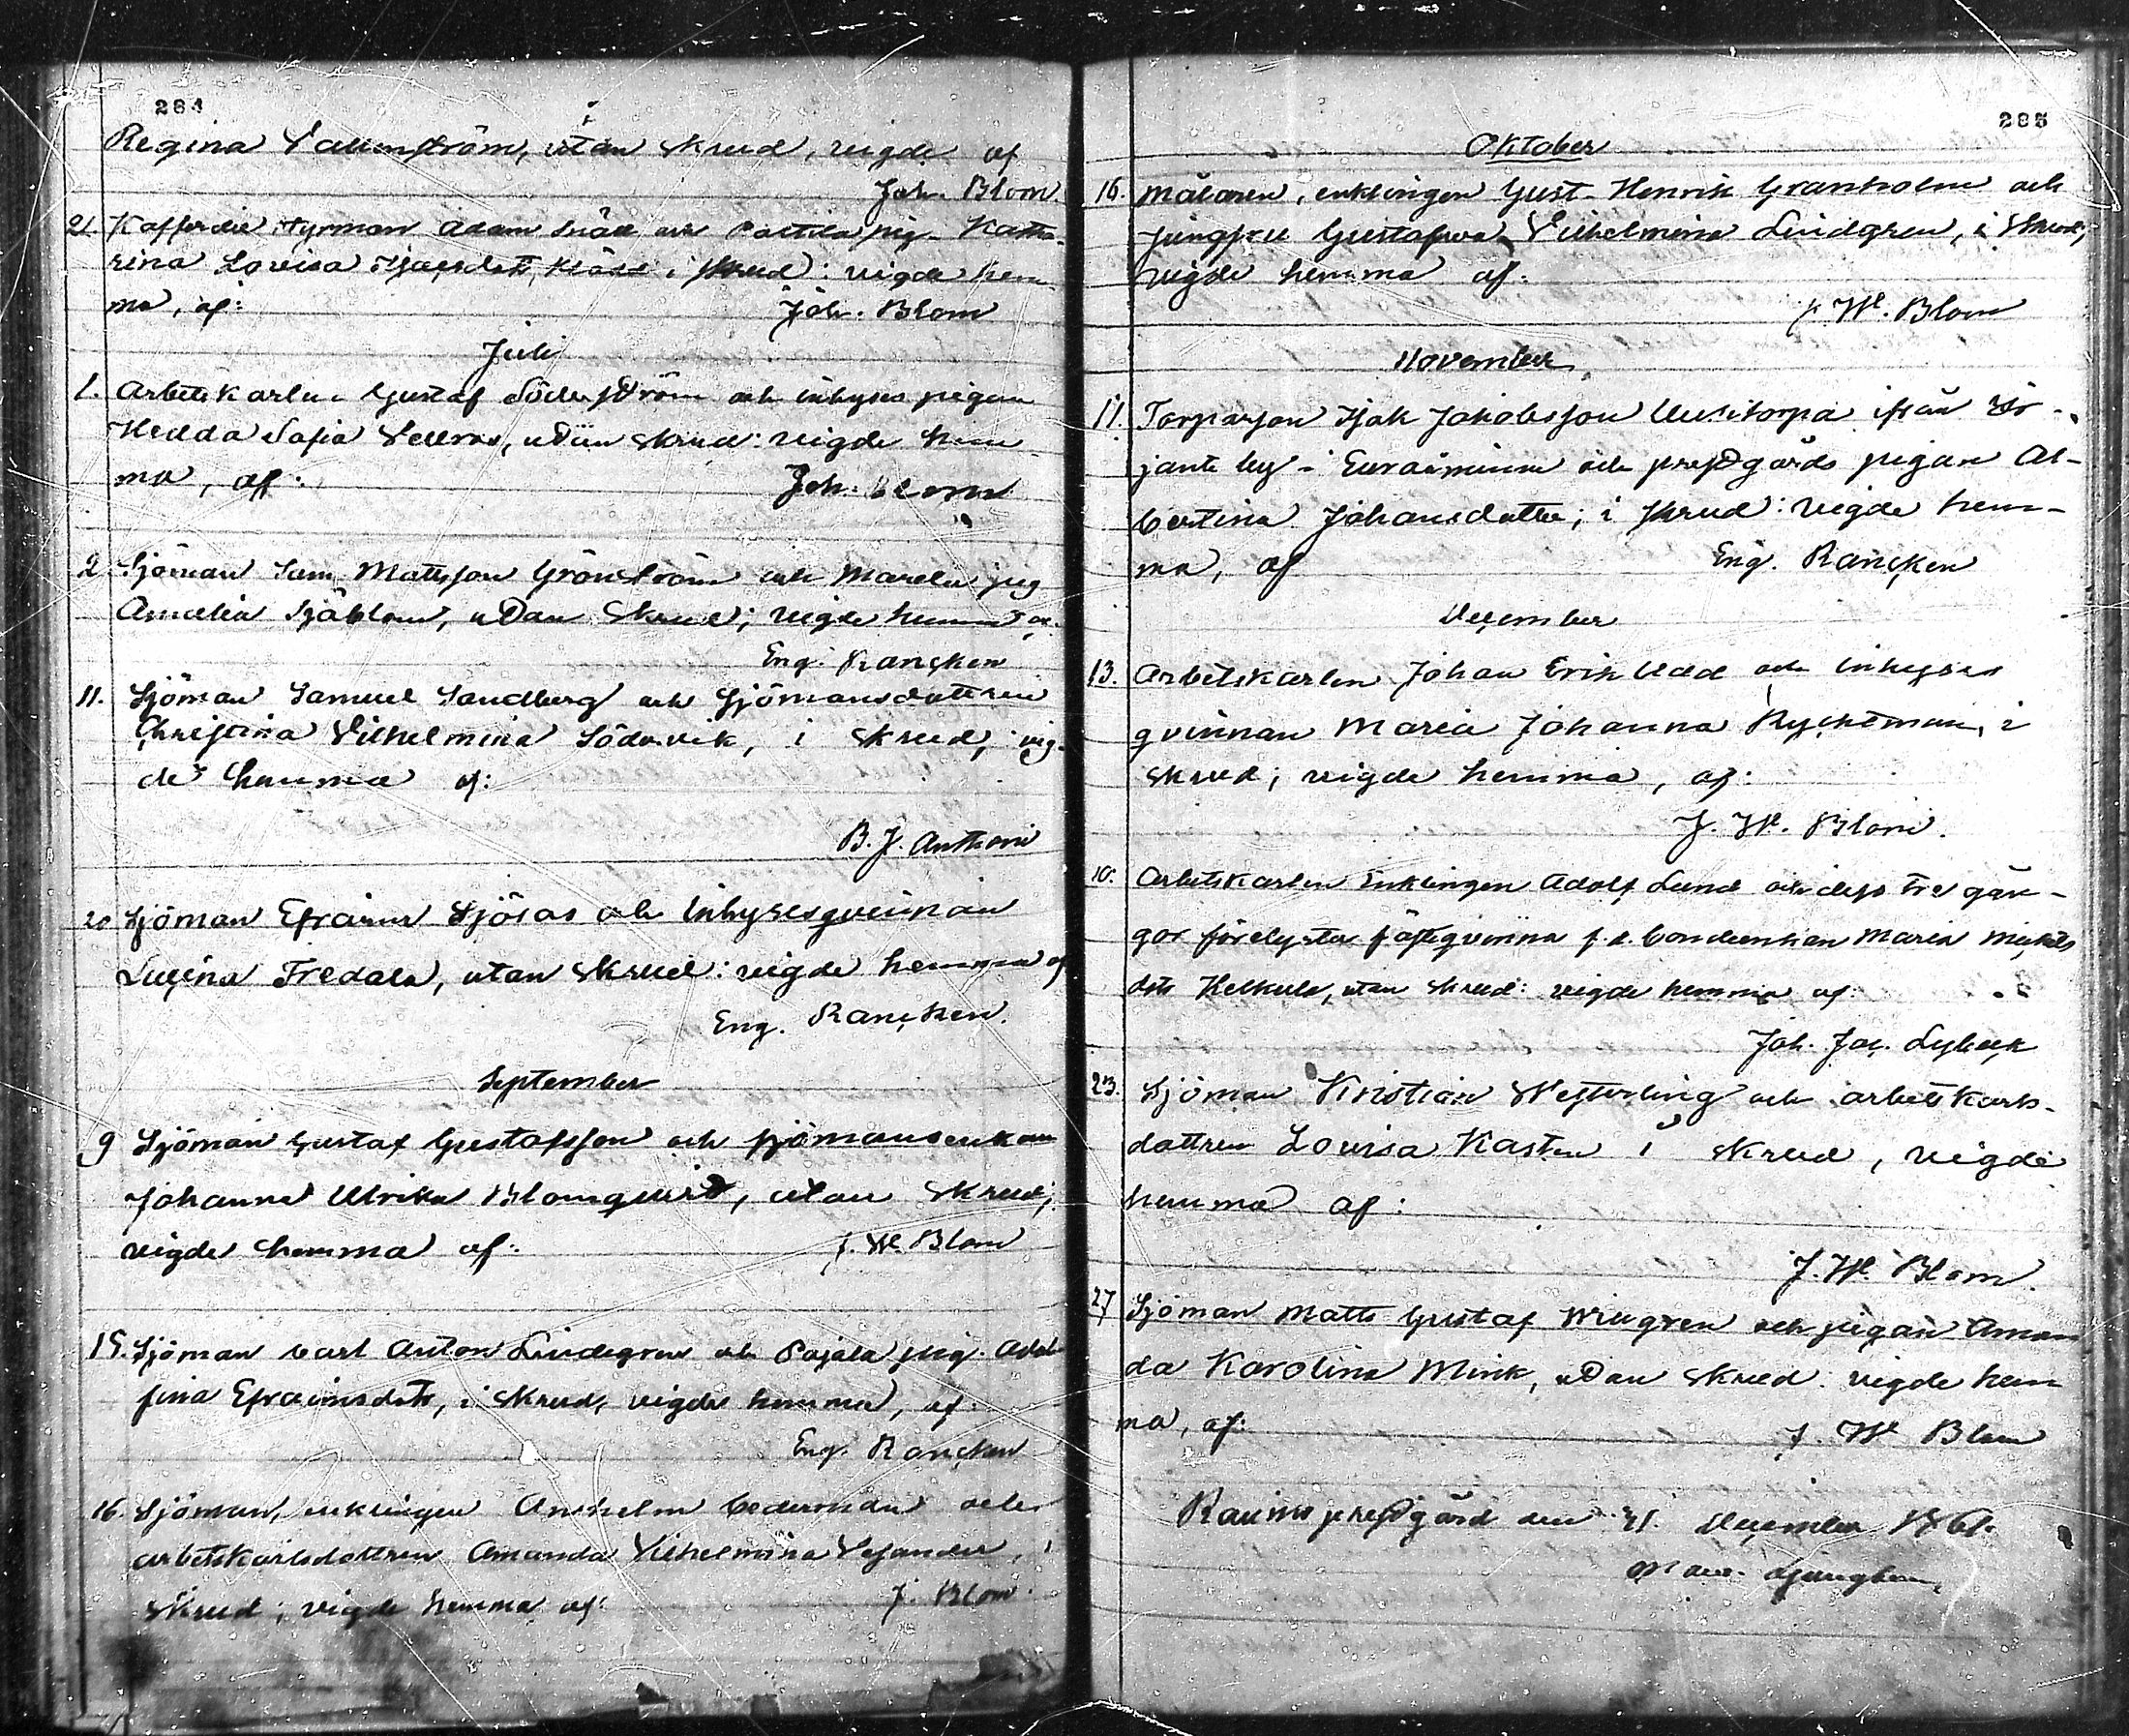 284
Regina utan skrud, vigde af
Joh. Blom.
21. Kofferdie styrman Adam Snäll och pig. Katha-
rina Lovisa i skrud: vigde hem-
ma, af: Joh. Blom
Juli
1. Arbetskarlen Gustaf Söderström och inhyses pigan
Hedda Sofia utan skrud: vigde hem
ma, af: Joh. Blom
2 Sjöman Sam. Mattsson Grönström och Marela pig
Amalia Sjöblom, utan skrud; vigde hemma af.
Eng. Rancken
11. Sjöman Samuel Sandberg och Sjömansdottren
Christina Vilhelmina Södervik, i skrud; vig-
de hemma af:
B. J. Anthoni
20 Sjöman Efraim Sjöros och Inhysesqvinnan
Lucina Fredala, utan skrud: vigde hemma af
Eng. Rancken.
September
9 Sjöman Gustaf Gustafsson och sjömansenkan
Johanna Ulrika Blomqvist, utan skrud;
vigde hemma af: J. W. Blom
15. Sjöman Carl Anton Lindegren och Pajala pig. Adol
fina Efraimsdotr, i skrud, vigde hemma, af:
Eng. Rancken
16. Sjöman, enklingen Anshelm Cederman och
arbetskarlsdottren Amanda Vilhelmina i
skrud; vigde hemma af: J. Blom.
285
Oktober
16. Målaren, enklingen Gust. Henrik Granholm och
jungfru Gustafva Vilhelmina Lindgren, i skrud;
vigde hemma af:
J. W. Blom
November
11. Torparson Isak Jakobsson Uusitorpa ifrån
jante by i Euraåminne och prestgårds pigan Al-
bertina Johansdotter; i skrud: vigde hem-
ma, af Eng. Rancken
December
13. Arbetskarlen Johan Erik Udd och Inhyses
qvinnan Maria Johanna Ryckman, i
skrud; vigde hemma, af:
J. W. Blom.
10. Arbetskarlen Enklingen Adolf Lund och dess tre gån-
gor förelysta fästeqvinna f. d. bondeenkan Maria Mickels
dotr Kelkula, utan skrud: vigde hemma af:
Joh. Jac. Lybeck
23. Sjöman Kristian Westerling och arbetskarls-
dottren Lovisa Kasten i skrud, vigde
hemma af:
J. W. Blom.
27 Sjöman Matts Gustaf Wingren och pigan Aman
da Karolina Mink, utan skrud: vigde hem
ma, af: J. W. Blom
Raumo prestgård den 31. December 1861.